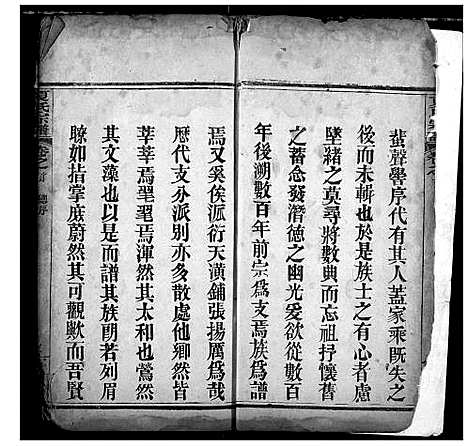 蜚聲學序代有其人蓋家乘既失之
後而未輯也於是族士之有心者慮
墜緒之莫尋將數典而忘祖抒懷舊
之蓄念發潛德之幽光爰欲從數百
年後溯數百年前宗為支焉族為譜
焉又奚俟派衍天潢鋪張揚厲為哉
歷代支分派別亦多散處他鄉然皆
莘莘焉㲄㲄焉渾然其太和也鶯然
其文藻也以是而譜其族朗若列眉
瞭如指掌庶蔚然其可觀歟而吾賢
氏宗譜